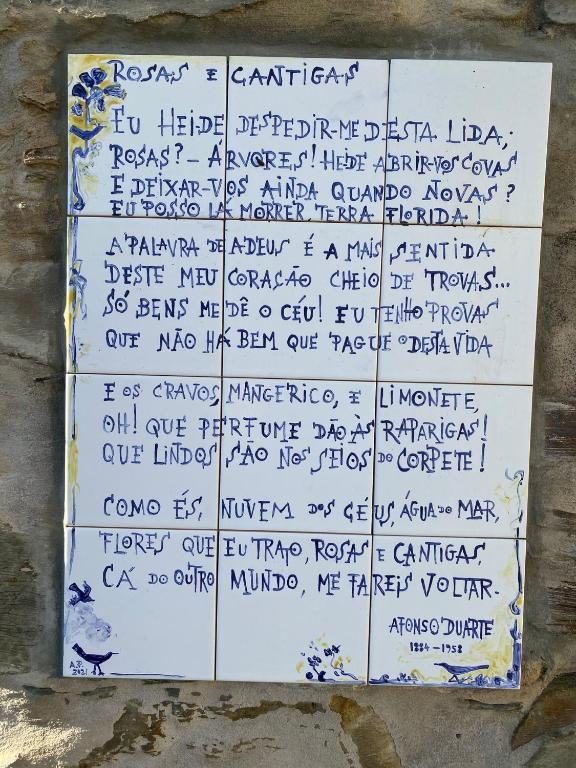 ROSAS E CANTIGAS
EU HEI-DE DESPEDIR-ME DESTA LIDA,;
ROSAS? - ÁRVORES! HEI-DE ABRIR-VOS COVAS
E DEIXAR-VOS AINDA QUANDO NOVAS?
EU POSSO LÁ MORRER, TERRA FLORIDA!
A PALAVRA DE ADEUS É A MAIS SENTIDA
DESTE MEU CORAÇÃO CHEIO DE TROVAS...
SÓ BENS ME DÊ O CÉU! EU TENHO PROVAS
QUE NÃO HÁ BEM QUE PAGUE O DESTA VIDA
E OS CRAVOS, MANGERICO, E LIMONETE,
OH! QUE PERFUME DÃO ÀS RAPARIGAS!
QUE LINDOS SÃO NOS SEIOS DO CORPETE!
COMO ÉS, NUVEM DOS CÉUS, ÁGUA DO MAR,
FLORES QUE EU TRATO, ROSAS E CANTIGAS,
CÁ DO OUTRO MUNDO, ME FAREIS VOLTAR.
AFONSO DUARTE
1884-1958
A.P.
2021